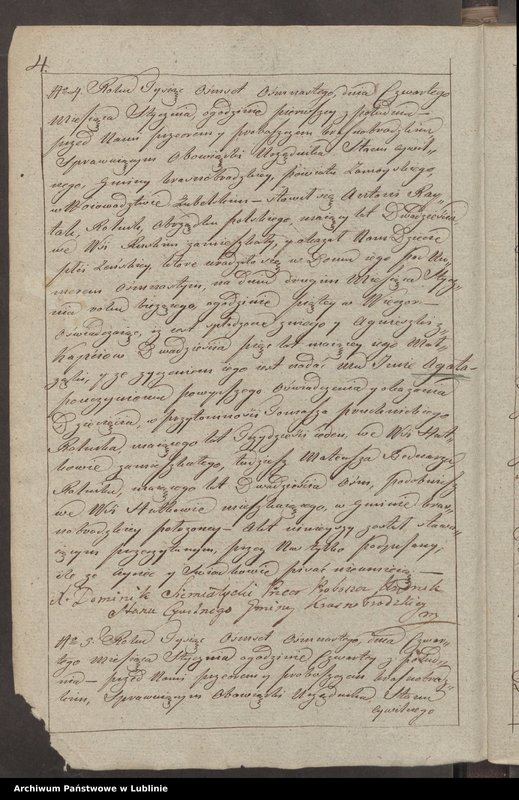 4.
No 4. Roku Tysiąc Osmset Osmnastego, dnia Czwartego
Miesiąca Stycznia, o godzinie pierwszey z południa —
przed Nami przeorem y proboszczem krasnobrodzkim
Sprawuiącym Obowiązki Urzędnika Stanu Cywil-
nego, Gminy krasnobrodzkiey, powiatu Zamoyskiego,
w Woiewodztwie Lubelskim — stawił się Antoni Kay-
tala, Rolnik, Obrządku polskiego, maiący lat Dwadzieścia
we Wsi zamieszkały, y okazał Nam Dziecie
płci Żeńskiey, które urodziło się w Domu iego pod Nu-
merem osmnastym, na dniu drugim Miesiąca Stycz-
nia roku bieżącego, o godzinie piątey w Wieczor —
Oświadczaiąc, iż iest spłodzone z niego y Agnieszki z
Dwadzieścia pięć lat maiącey iego Mał-
żonki, y że życzeniem iego iest nadać mu Imie Agata —
po uczynieniu powyższego Oświadczenia y okazania
Dziecięcia, w przytomności Tomasza
Rolnika, maiącego lat Trzydzieści ieden, we Wsi Hut-
kowie zamieszkałego, tudzież Mateusza Bednarza,
Rolnika, maiącego lat Dwadzieścia Osm, podobnież
we Wsi Hutkowie mieszkaiącego, w Gminie kras-
nobrodzkiey położoney — Akt ninieyszy został stawa-
iącym przeczytanym, przez Nas tylko podpisany,
ile że Oyciec y Świadkowie pisać nieumieią —
X. Dominik Siemiatycki Przeor Proboszcz Urzędnik
Stanu Cywilnego Gminy Krasnobrodzkiey
No 5. Roku Tysiąc Osmset Osmnastego, dnia Czwar-
tego Miesiąca Stycznia o godzinie Czwartey z połud-
nia — przed Nami przeorem y proboszczem krasnobrodz-
kim, Sprawuiącym Obowiązki Urzędnika Stanu
Cywilnego
Archiwum Państwowe w Lublinie